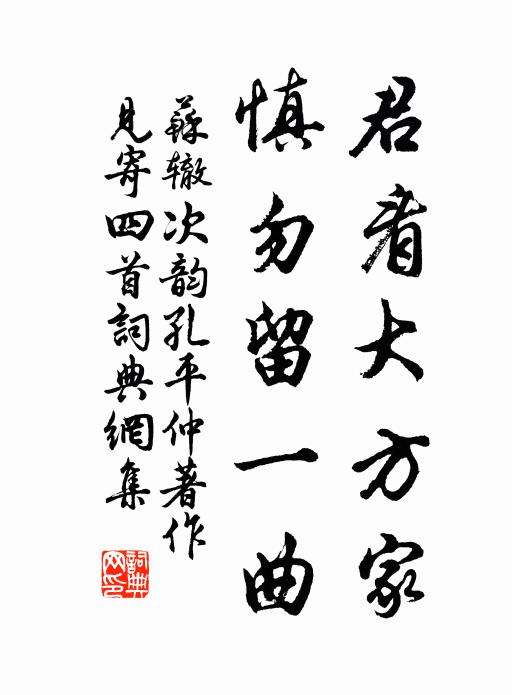 君看大方家
慎勿留一曲
蘇辙次韵孔平仲著作
見寄四首詞典網集
詞典
网印